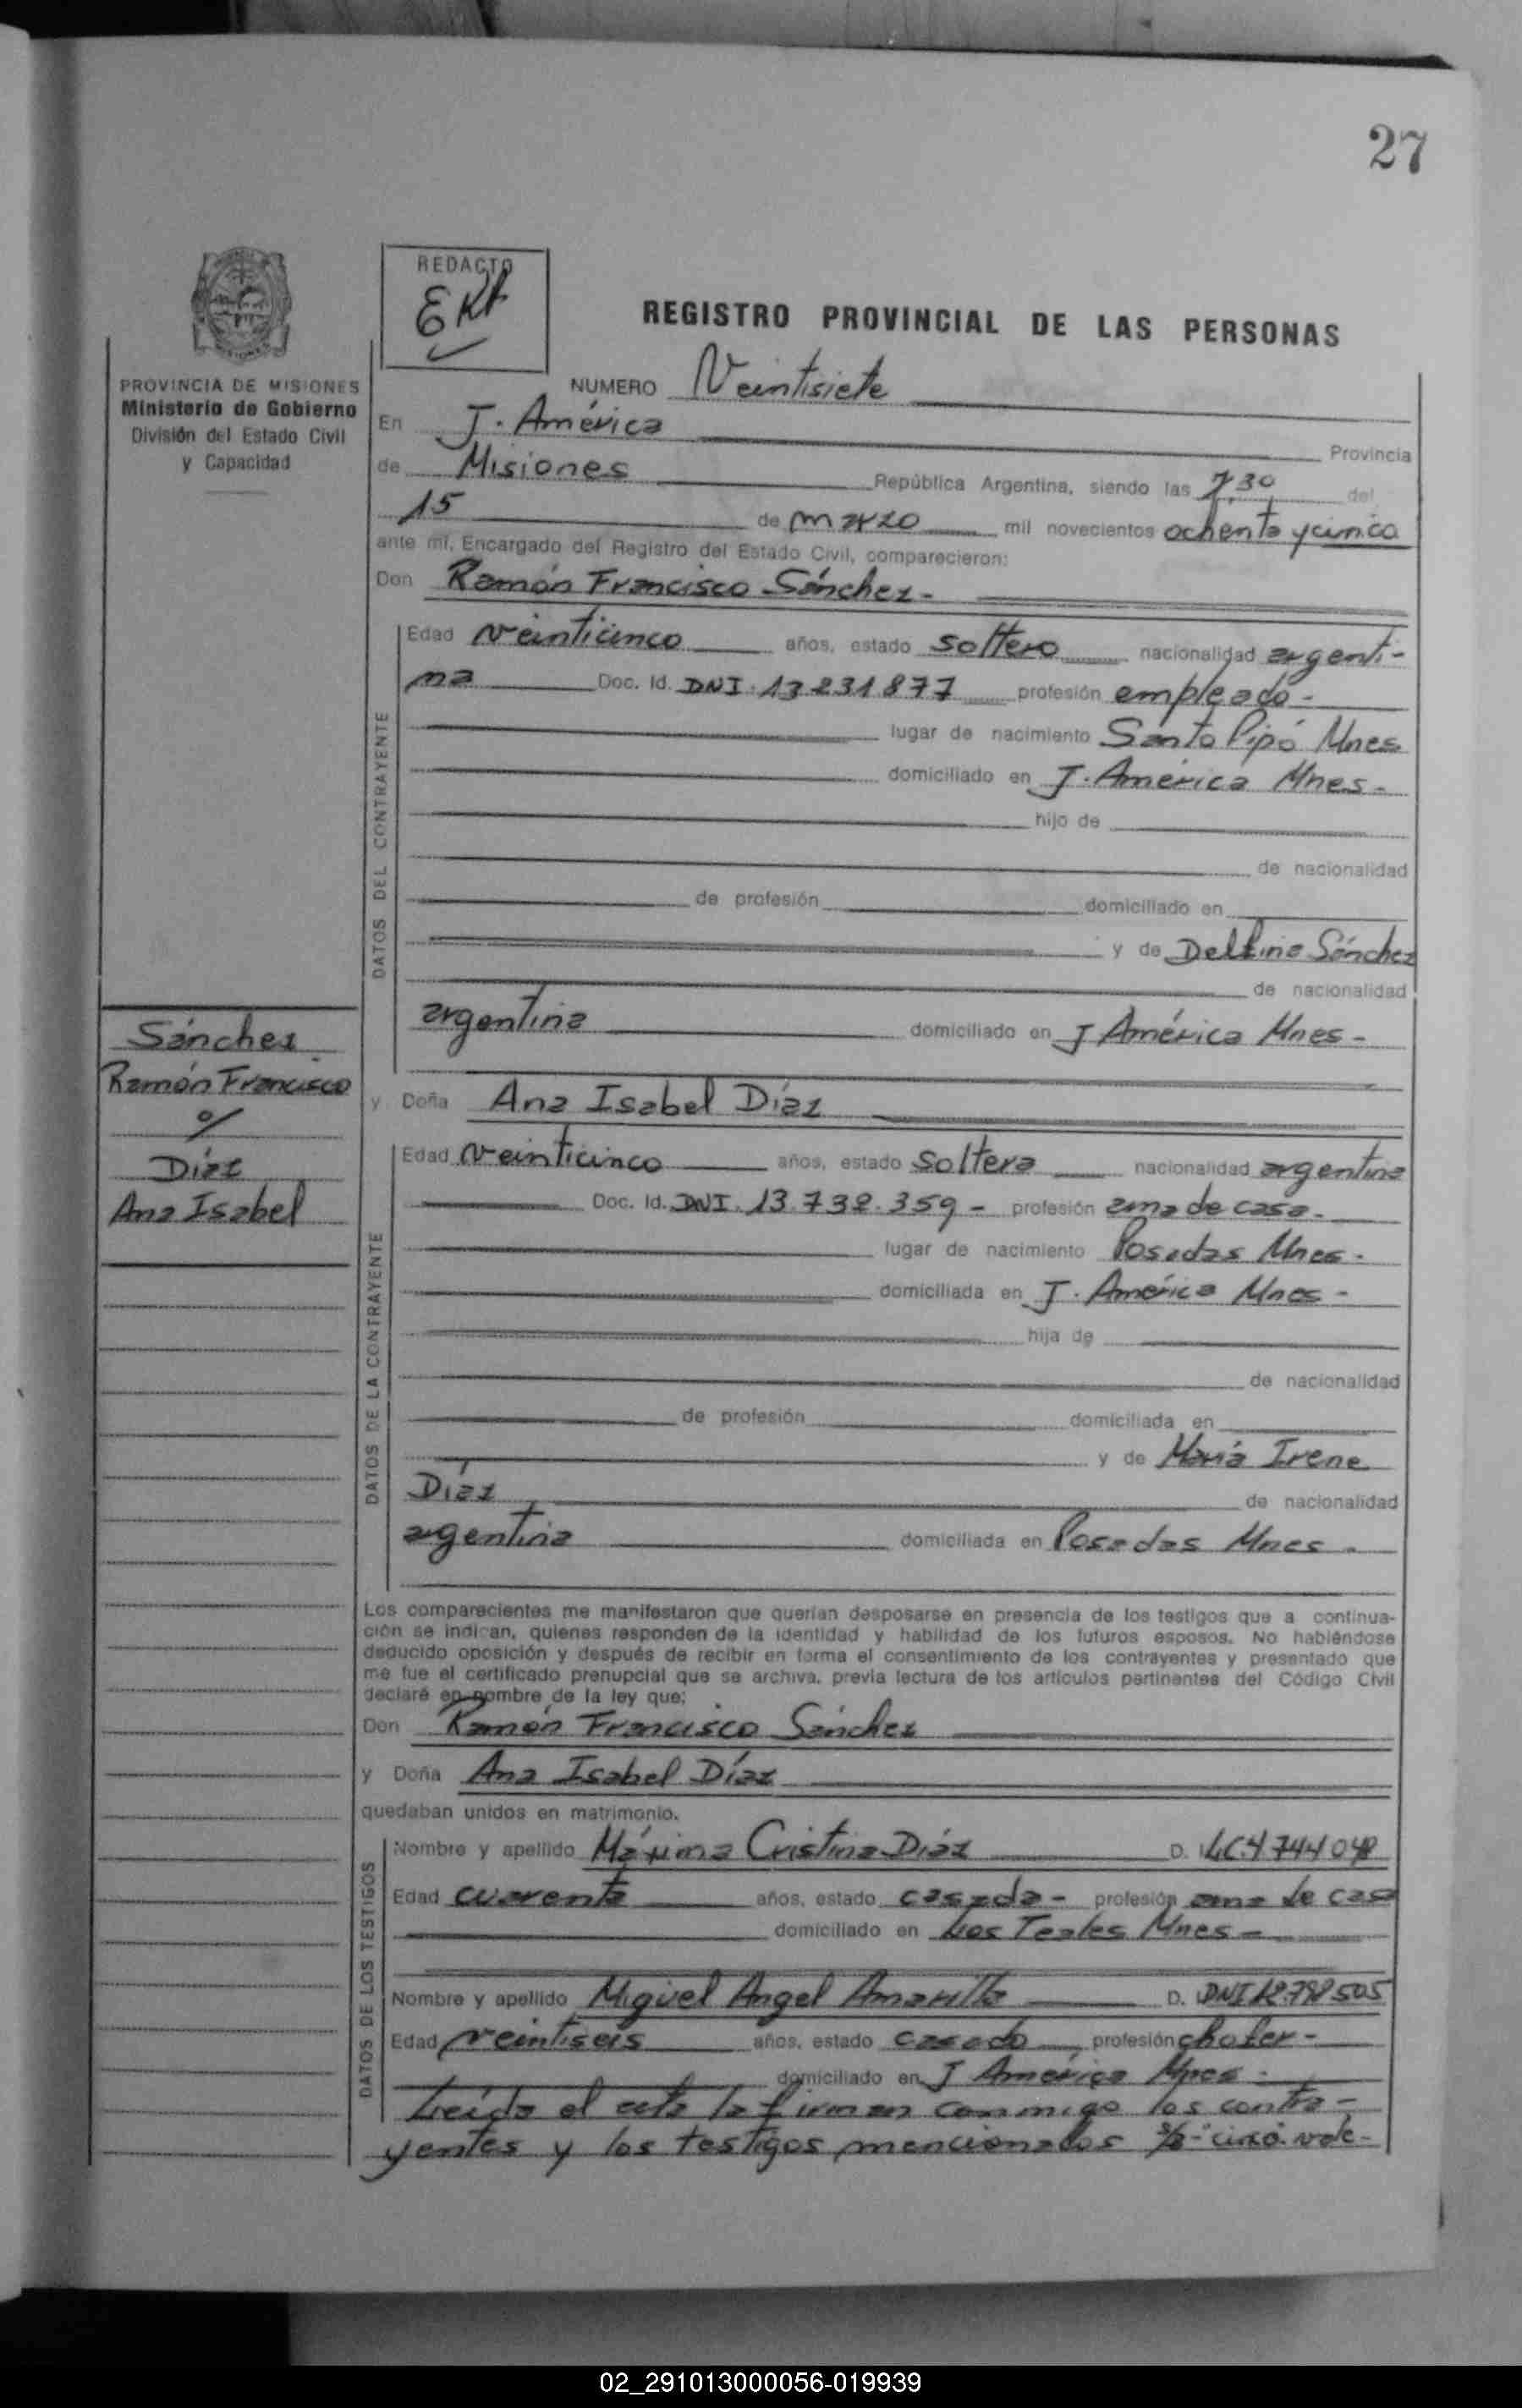 27
REDACTO
REGISTRO PROVINCIAL DE LAS PERSONAS
PROVINCIA DE MISIONES
Ministerio de Gobierno
División del Estado Civil
y Capacidad
NUMERO Veintisiete
En J. América Provincia
de Misiones República Argentina, siendo las 7.30 del
15 de marzo mil novecientos ochenta y cinco
ante mí, Encargado del Registro del Estado Civil, comparecieron:
Don Ramón Francisco Sánchez-
DATOS DEL CONTRAYENTE
Edad veinticinco años, estado soltero nacionalidad argenti-
na Doc. Id. DNI. 13231877 profesión empleado-
lugar de nacimiento Santo Pipó Mnes
domiciliado en J. América Mnes-
hijo de
de nacionalidad
de profesión domiciliado en
y de Delfina Sánchez
de nacionalidad
argentina domiciliado en J América Mnes-
Sánchez
Ramón Francisco
Díaz
Ana Isabel
y Doña Ana Isabel Díaz
DATOS DE LA CONTRAYENTE
Edad veinticinco años, estado soltera nacionalidad argentina
Doc. Id. DNI. 13.732.359- profesión ama de casa-
lugar de nacimiento Posadas Mnes-
domiciliada en J. América Mnes-
hija de
de nacionalidad
de profesión domiciliada en
y de María Irene
Díaz de nacionalidad
argentina domiciliada en Posadas Mnes-
Los comparecientes me manifestaron que querían desposarse en presencia de los testigos que a continua-
ción se indican, quienes responden de la identidad y habilidad de los futuros esposos. No habiéndose
deducido oposición y después de recibir en forma el consentimiento de los contrayentes y presentado que
me fue el certificado prenupcial que se archiva, previa lectura de los artículos pertinentes del Código Civil
declaré en nombre de la ley que:
Don Ramón Francisco Sánchez
y Doña Ana Isabel Díaz
quedaban unidos en matrimonio.
DATOS DE LOS TESTIGOS
Nombre y apellido Máxima Cristina Díaz D. LC4744048
Edad cuarenta años, estado casada- profesión ama de casa
domiciliado en Los Teales Mnes-
Nombre y apellido Miguel Angel Amarilla D. DNI
Edad veintiseis años, estado casado profesión chofer-
domiciliado en J América Mnes-
Leída el acta la firman conmigo los contra-
yentes y los testigos mencionados vale-
02_291013000056-019939